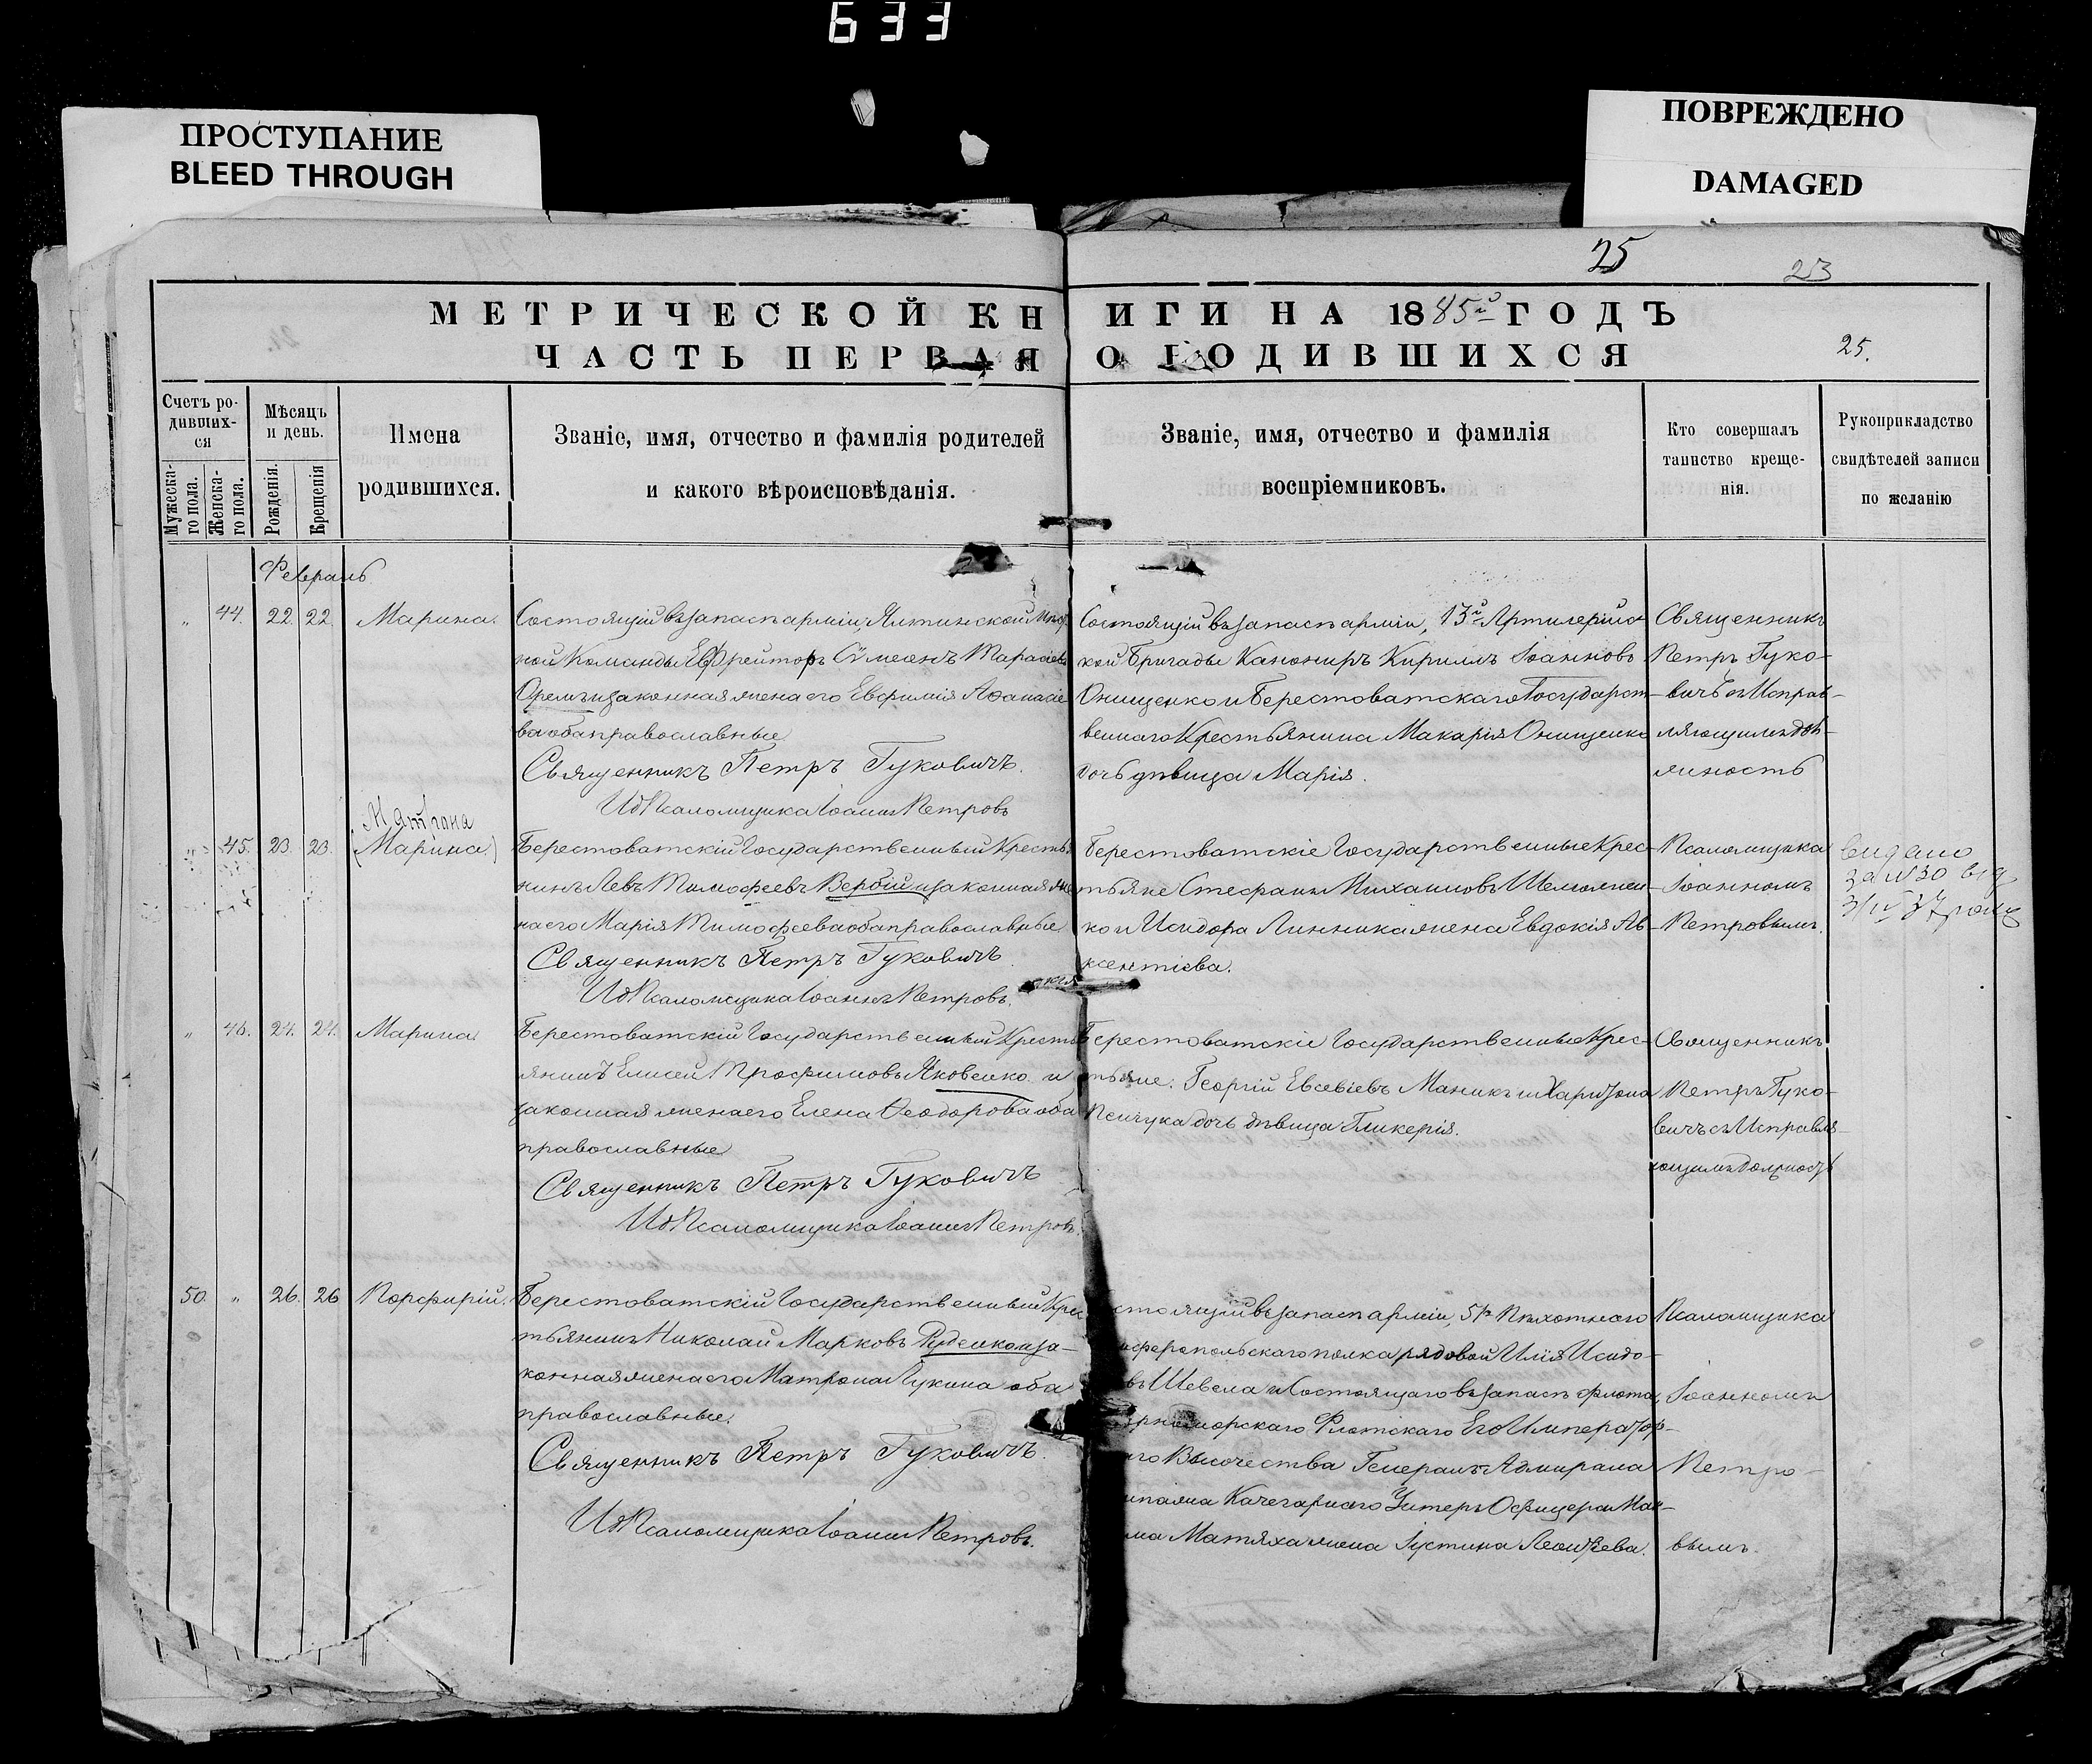 633
ПРОСТУПАНИЕ
BLEED THROUGH
ПОВРЕЖДЕНО
DAMAGED
25
МЕТРИЧЕСКОЙ КНИГИ НА 1885й ГОДЪ
ЧАСТЬ ПЕРВАЯ О РОДИВШИХСЯ
25.
Счетъ ро-
дивших-
ся
Мужеска-
го пола.
Женска-
го пола.
Мѣсяцъ
и день.
Рожденія.
Крещенія
Имена
родившихся.
Званіе, имя, отчество и фамилія родителей
и какого вѣроисповѣданія.
Званіе, имя, отчество и фамилія
воспріемниковъ.
Кто совершалъ
таинство креще-
нія.
Рукоприкладство
свидѣтелей записи
по желанію
Февраль
„ 44. 22. 22. Марина.
Состоящій въ запасѣ арміи, Ялтинской
ной Команды Ефрейторъ Сѵмеонъ Тарасіевъ
и законная жена его Евфимія Афанасіе
ва оба православные
Священникъ Петръ Гуковичъ.
ИдПсаломщика Іоаннъ Петровъ
Состоящій въ запасѣ арміи, 13й Артилерійс
кой Бригады Канониръ Кириллъ Іоанновъ
Онищенко и Берестоватскаго Государст-
веннаго Крестьянина Макарія Онищенко
дочь дѣвица Марія.
Священникъ
Петръ Гуко-
вичъ съ Исправ-
ляющимъ дол-
жность
„ 45. 23. 23. Матрона
(Марина.)
Берестоватскій Государственный Крестья
нинъ Левъ Тимофеевъ Вербій и законная же
на его Марія Тимофеева оба православные
Священникъ Петръ Гуковичъ
ИдПсаломщика Іоаннъ Петровъ.
Берестоватскіе Государственные Крес-
тьяне Стефанъ Михаиловъ
ко и Исидора Линника жена Евдокія Ав-
ксентіева.
Псаломщика
Іоанномъ
Петровымъ.
видано
за №30 від
3/IV 37 року
„ 46. 24. 24. Марина
Берестоватскій Государственный Кресть
янинъ Елисей Трофимовъ Яковенко и
законная жена его Елена Феодорова оба
православные
Священникъ Петръ Гуковичъ
ИдПсаломщика Іоаннъ Петровъ.
Берестоватскіе Государственные Крес-
тьяне: Георгій Евсевіевъ Маникъ и Харитона
дочь дѣвица Гликерія.
Священникъ
Петръ Гуко-
вичъ съ Исправля-
ющимъ должность
50. „ 26. 26 Порфирій.
Берестоватскій Государственный Крес
тьянинъ Николай Марковъ Руденко и за-
конная жена его Матрона Лукина оба
православные.
Священникъ Петръ Гуковичъ.
ИдПсаломщика Іоаннъ Петровъ.
стоящій въ запасѣ арміи, 51го Пѣхотнаго
мферопольскаго полка рядовой Илія Исидо-
въ Шевела и Состоящаго въ запасѣ флота,
рноморскаго Флотскаго Его Император-
го Высочества Генералъ Адмирала
ипажа Кочегарнаго Унтеръ Офицера Мак-
има Матяха жена Іустина Леонтіева.
Псаломщика
Іоанномъ
Петро-
вымъ.